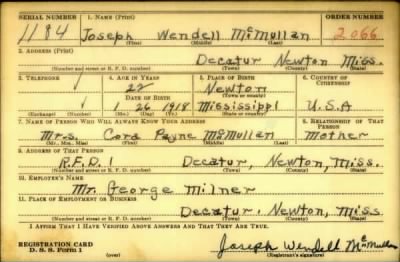 SERIAL NUMBER 1. NAME (Print) ORDER NUMBER
1184 Joseph Wendell McMullan 2066
(First) (Middle) (Last)
2. ADDRESS (Print)
Decatur Newton Miss.
(Number and street or R. F. D. number) (Town) (County) (State)
3. TELEPHONE 4. AGE IN YEARS 5. PLACE OF BIRTH 6. COUNTRY OF CITIZENSHIP
22 Newton
DATE OF BIRTH (Town or county)
1 26 1918 Mississippi U.S.A
(Exchange) (Number) (Mo.) (Day) (Yr.) (State or country)
7. NAME OF PERSON WHO WILL ALWAYS KNOW YOUR ADDRESS 8. RELATIONSHIP OF THAT PERSON
Mrs. Cora Payne McMullan Mother
(Mr., Mrs., Miss) (First) (Middle) (Last)
9. ADDRESS OF THAT PERSON
R.F.D. 1 Decatur, Newton, Miss.
(Number and street or R. F. D. number) (Town) (County) (State)
10. EMPLOYER'S NAME
Mr. George Milner
11. PLACE OF EMPLOYMENT OR BUSINESS
Decatur, Newton, Miss
(Number and street or R. F. D. number) (Town) (County) (State)
I AFFIRM THAT I HAVE VERIFIED ABOVE ANSWERS AND THAT THEY ARE TRUE.
REGISTRATION CARD
D. S. S. Form 1 (over) Joseph Wendell McMullan
(Registrant's signature)